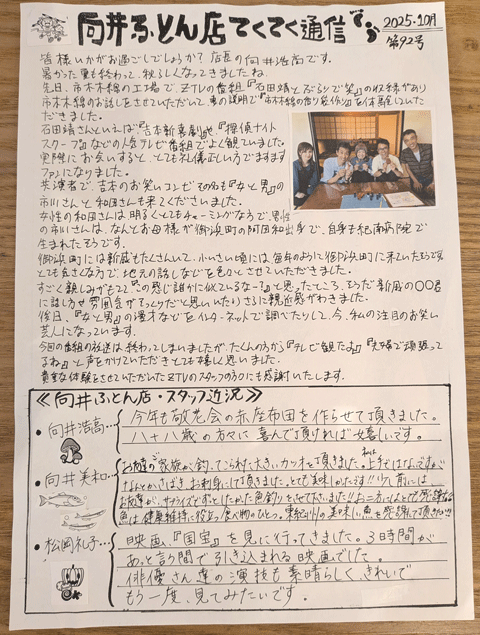 向井ふとん店てくてく通信
2025.10月
第92号
皆様いかがお過ごしでしょうか？店長の向井浩高です。
暑かった夏も終わって、秋らしくなってきましたね。
先日、市木木綿の工場で、ZTVの番組『石田靖とぶらりで笑』の収録があり
市木木綿のお話しをさせていただいて、車の説明で『市木木綿の飾り袋作り』を体験していた
だきました。
石田靖さんといえば『吉本新喜劇』や、『探偵ナイト
スクープ』などの人気テレビ番組でよく観ていました。
実際にお会いすると、とても礼儀正しい方でますます
ファンになりました。
共演者で、吉本のお笑いコンビ その名も『女と男』の
市川さんと和田さんも来てくださいました。
女性の和田さんは明るくとてもチャーミングな方で、男性
の市川さんは、なんとお母様が御浜町の阿田和出身で、自身も紀南病院で
生まれたそうです。
御浜町には親戚もたくさんいて、小さい頃には毎年のように御浜町に来ていたそうです。
とても気さくな方で、地元の話しなどを色々とさせていただきました。
すごく親しみがもてて『この感じ誰かに似ているな〜？』と思ったところ、そうだ新風の〇〇君
に話し方や雰囲気がそっくりだと思いいたり、さらに親近感がわきました。
後日、『女と男』の漫才などをインターネットで調べたりして、今、私の注目のお笑い
芸人になっています。
今回の番組の放送は終わってしまいましたが、たくさんの方から『テレビ観たよ』『夫婦で頑張って
るね』と声をかけていただきとても嬉しく思いました。
貴重な体験をさせていただいたZTVのスタッフの方々にも感謝いたします。
≪向井ふとん店・スタッフ近況≫
・向井浩高…
今年も敬老会の赤座布団を作らせて頂きました。
八十八歳の方々に喜んで頂ければ嬉しいです。
・向井美和…
お友達の家族が釣ってこられた大きいカツオを頂きました。上手ではないですが
なんとかさばき、お刺身にして頂きました。とても美味しかったです!!少し前には
魚は健康維持に役立つ食べ物のひとつ。東紀州の美味しい魚を感謝して頂きます!!
・松岡礼子…
映画『国宝』を見に行ってきました。3時間が
あっと言う間で引き込まれる映画でした。
俳優さん達の演技も素晴らしく、きれいで
もう一度、見てみたいです。